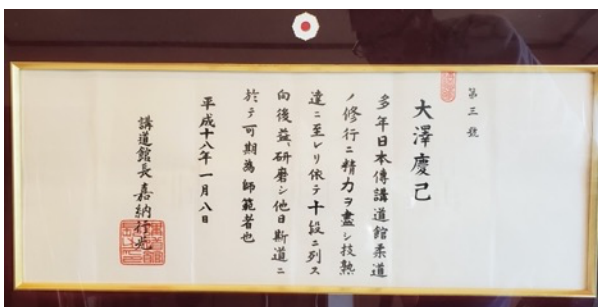 第三號
大澤慶己
多年日本傳講道館柔道
ノ修行ニ精力ヲ盡シ技熟
達ニ至レリ依テ十段ニ列ス
向後益〻研磨シ他日斯道ニ
於テ可期為師範者也
平成十八年一月八日
講道館長 嘉納行光